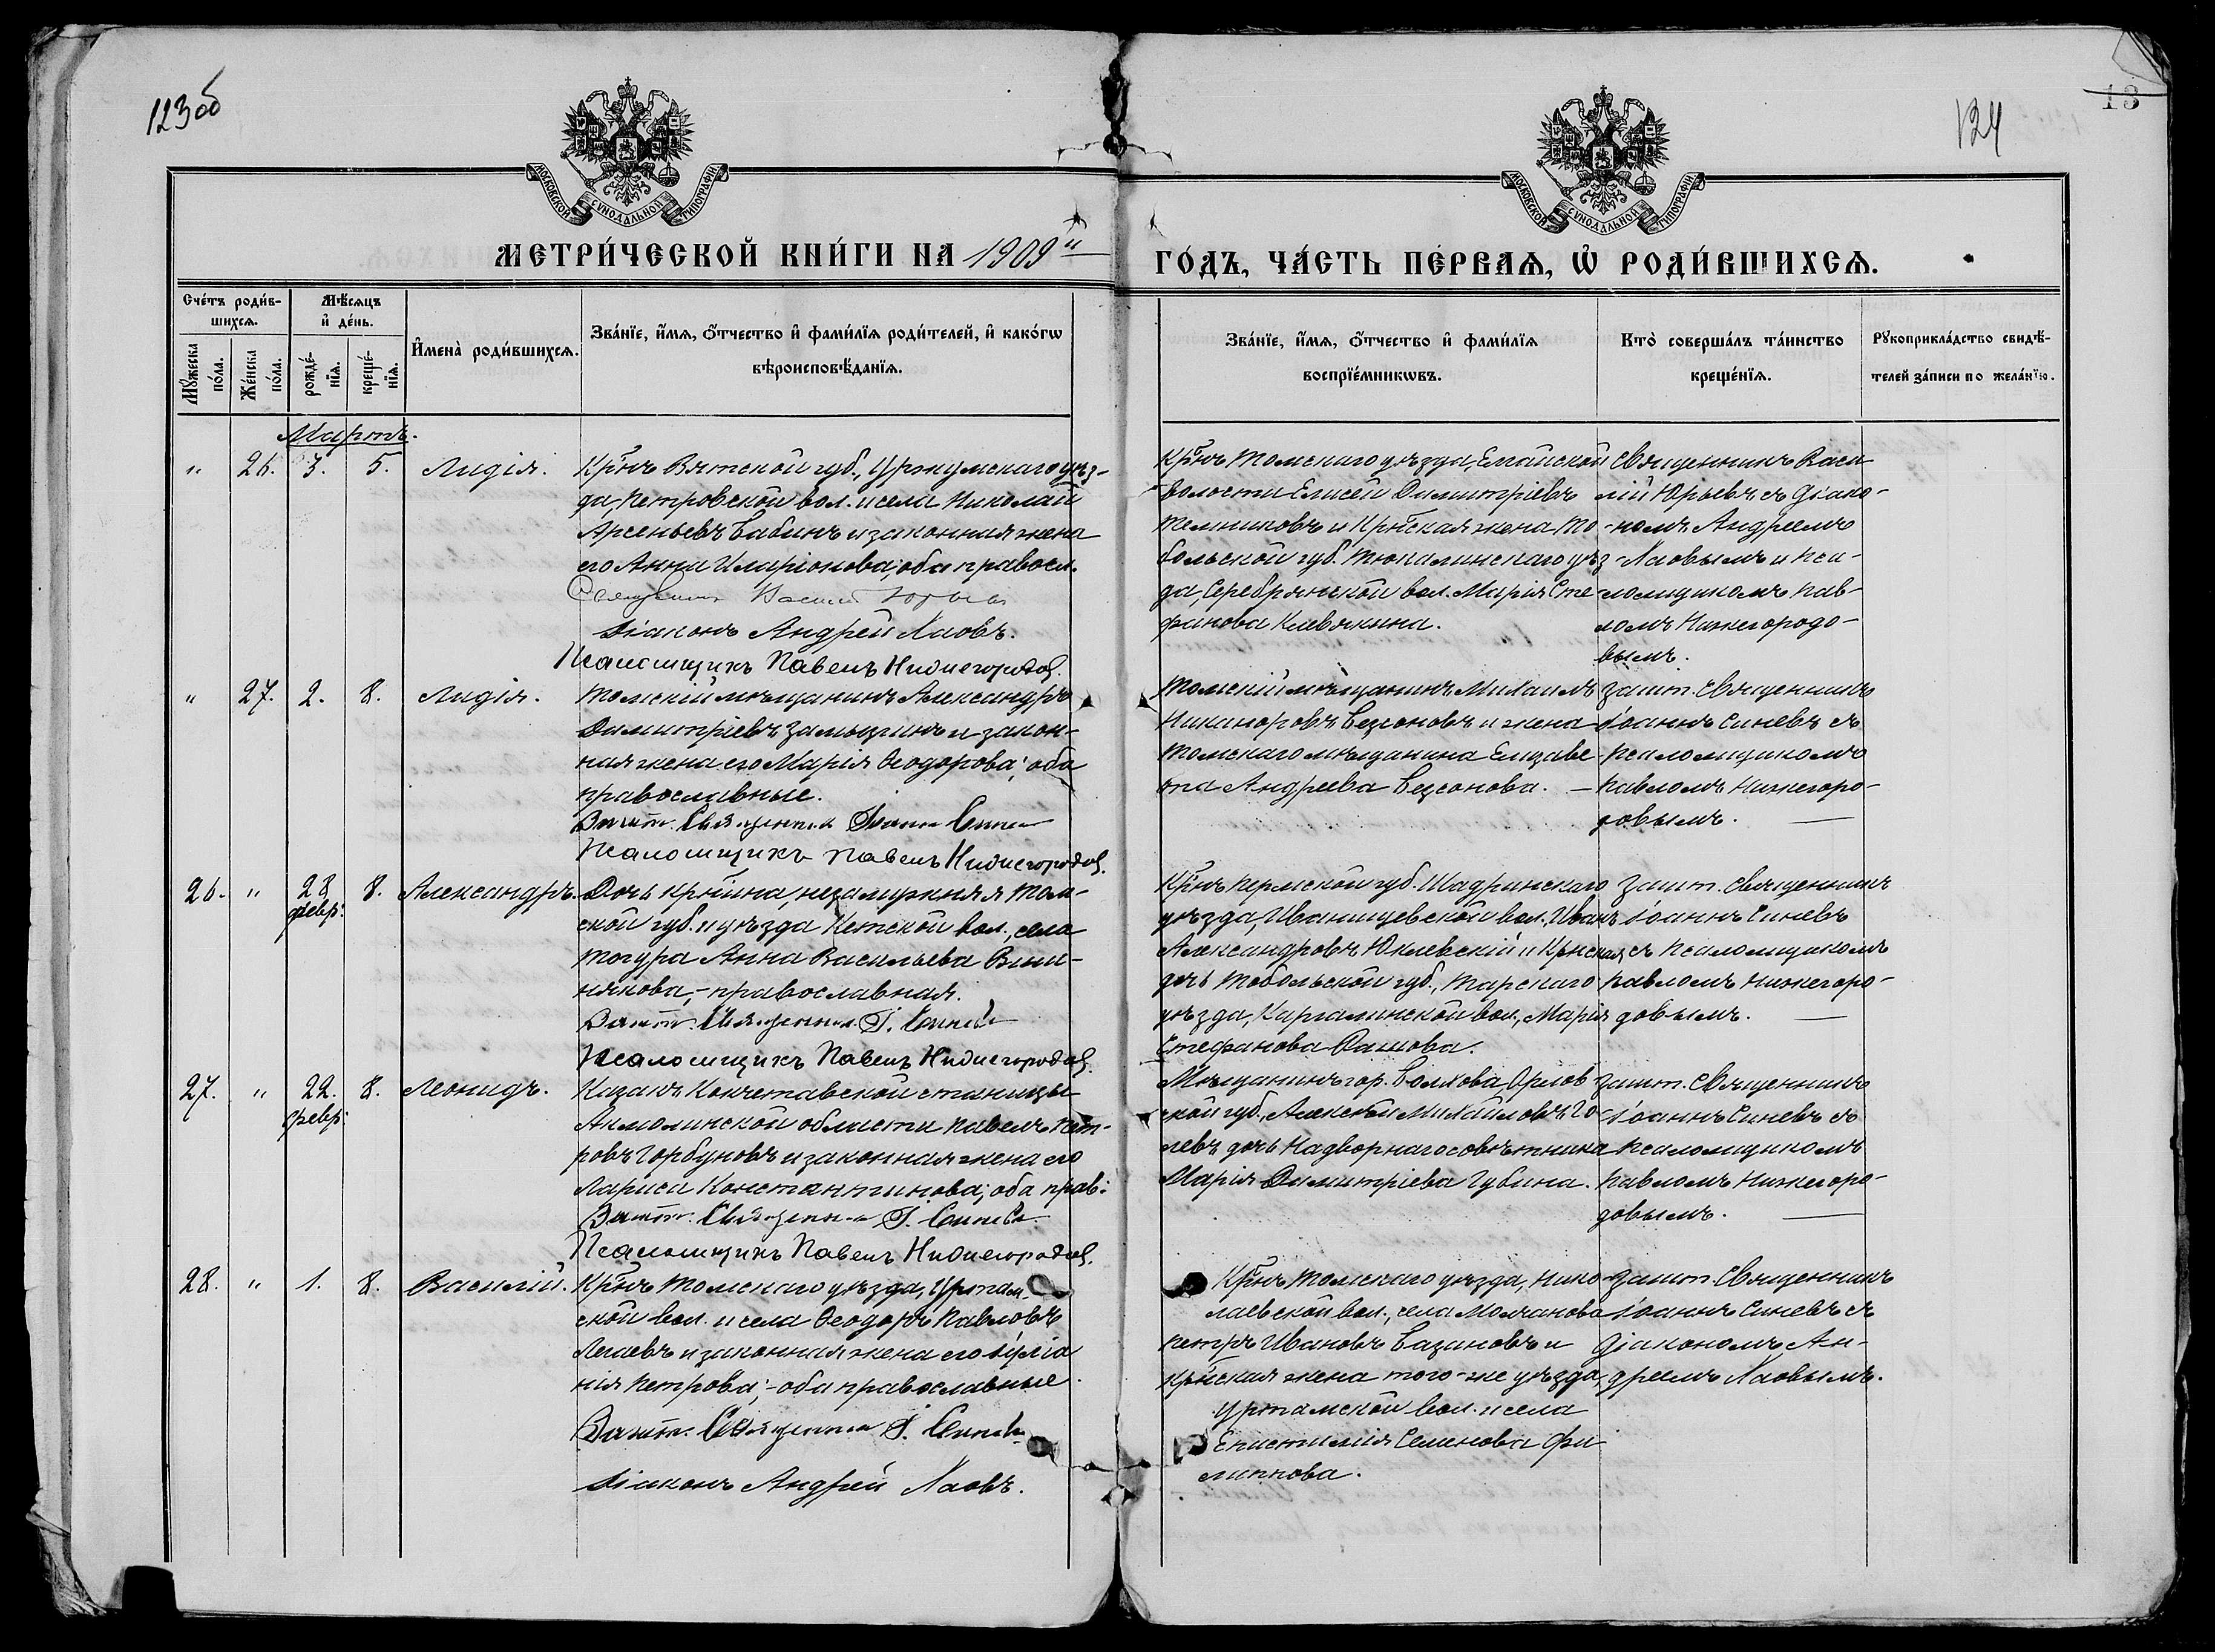 123об
124
13
МОСКОВСКОЙ СѴНОДАЛЬНОЙ ТИПОГРАФІИ
МОСКОВСКОЙ СѴНОДАЛЬНОЙ ТИПОГРАФІИ
МЕТРИ́ЧЕСКОЙ КНИ́ГИ НА 1909й
ГО́ДЪ, ЧА́СТЬ ПЕ́РВАѦ, Ѡ҆ РОДИ́ВШИХСѦ.
Сче́тъ роди́в-
шихсѧ.
Мꙋ́жеска по́ла.
Же́нска по́ла.
Мѣ́сѧцъ
и҆ де́нь.
рожде́-нїѧ.
креще́-нїѧ.
И҆мена̀ роди́вшихсѧ.
Зва́нїе, и҆́мѧ, ѻ҆́тчество и҆ фами́лїѧ роди́телей, и҆ како́гѡ
вѣроисповѣ́данїѧ.
Зва́нїе, и҆́мѧ, ѻ҆́тчество и҆ фами́лїѧ
воспрїе́мникѡвъ.
Кто̀ соверша́лъ та́инство
креще́нїѧ.
Рꙋкоприкла́дство свидѣ́-
телей за́писи по жела́нїю.
Мартъ.
" 26. 3. 5. Лидія.
Кр̃нъ Вятской губ., Уржумскаго уѣз-
да, Петровской вол. и села Николай
Арсеньевъ Бабинъ и законная жена
его Анна Иларіонова; оба правосл.
Священник Василий Юрьев
Діаконъ Андрей Лаовъ.
Псаломщикъ Павелъ Нижегородов.
Кр̃нъ Томскаго уѣзда, Елгайской
волости Елисей Димитріевъ
Темниковъ и Кр̃нская жена То-
больской губ. Тюкалинскаго уѣз-
да, Серебрянской вол. Марія Сте
фанова Клевакина.
Священникъ Васи
лій Юрьевъ съ діако-
номъ Андреемъ
Лаовымъ и пса-
ломщикомъ Пав-
ломъ Нижегородо-
вымъ.
" 27. 2. 8. Лидія.
Томскій мѣщанинъ Александръ
Димитріевъ Замызгинъ и закон-
ная жена его Марія Ѳеодорова; оба
православные.
Зашт. Священник Іоанн Синев
Псаломщикъ Павелъ Нижегородов.
Томскій мѣщанинъ Михаилъ
Никаноровъ Безсоновъ и жена
Томскаго мѣщанина Елизаве-
та Андреева Безсонова. —
зашт. Священникъ
Іоаннъ Синевъ съ
псаломщикомъ
Павломъ Нижегоро-
довымъ. —
26. " 28 февр: 8. Александръ.
Дочь кр̃нина, незамужняя Том-
ской губ. и уѣзда Кетской вол., села
Тогура Анна Васильева Виш-
някова, - православная.
Зашт. Священник І. Синев
Псаломщикъ Павелъ Нижегородов.
Кр̃нъ Пермской губ. Шадринскаго
уѣзда, Иванищевской вол., Иванъ
Александровъ Юклевскій и Кр̃нская
дочь Тобольской губ., Тарскаго
уѣзда, Каргалинской вол., Марія
Стефанова Дашова.
Зашт. Священникъ
Іоаннъ Синевъ
съ псаломщикомъ
Павломъ Нижегоро-
довымъ. —
27. " 22. февр: 8. Леонидъ.
Казакъ Кокчетавской станицы
Акмолинской области Павелъ Пет-
ровъ Горбуновъ и законная жена его
Лариса Константинова; оба прав:
Зашт. Священник І. Синев
Псаломщикъ Павелъ Нижегородов.
Мѣщанинъ гор. Болхова Орлов
ской губ., Алексѣй Михайловъ Го-
левъ дочь Надворнаго совѣтника
Марія Димитріева Губина.
зашт. Священникъ
Іоаннъ Синевъ съ
псаломщикомъ
Павломъ Нижегоро-
довымъ. —
28. " 1. 8. Василій.
Кр̃нъ Томскаго уѣзда, Уртам-
ской вол. и села Ѳеодоръ Павловъ
Легаевъ и законная жена его Іуліа
нія Петрова; - оба православные.
Зашт. Священник І. Синев
Діаконъ Андрей Лаовъ.
Кр̃нъ Томскаго уѣзда, Нико-
лаевской вол., села Молчанова
Петръ Ивановъ Базановъ и
кр̃нская жена того-же уѣзда,
Уртамской вол. и села
Епистимія Семенова Фи
липпова.
зашт. Священникъ
Іоаннъ Синевъ съ
діакономъ Ан-
дреемъ Лаовымъ.